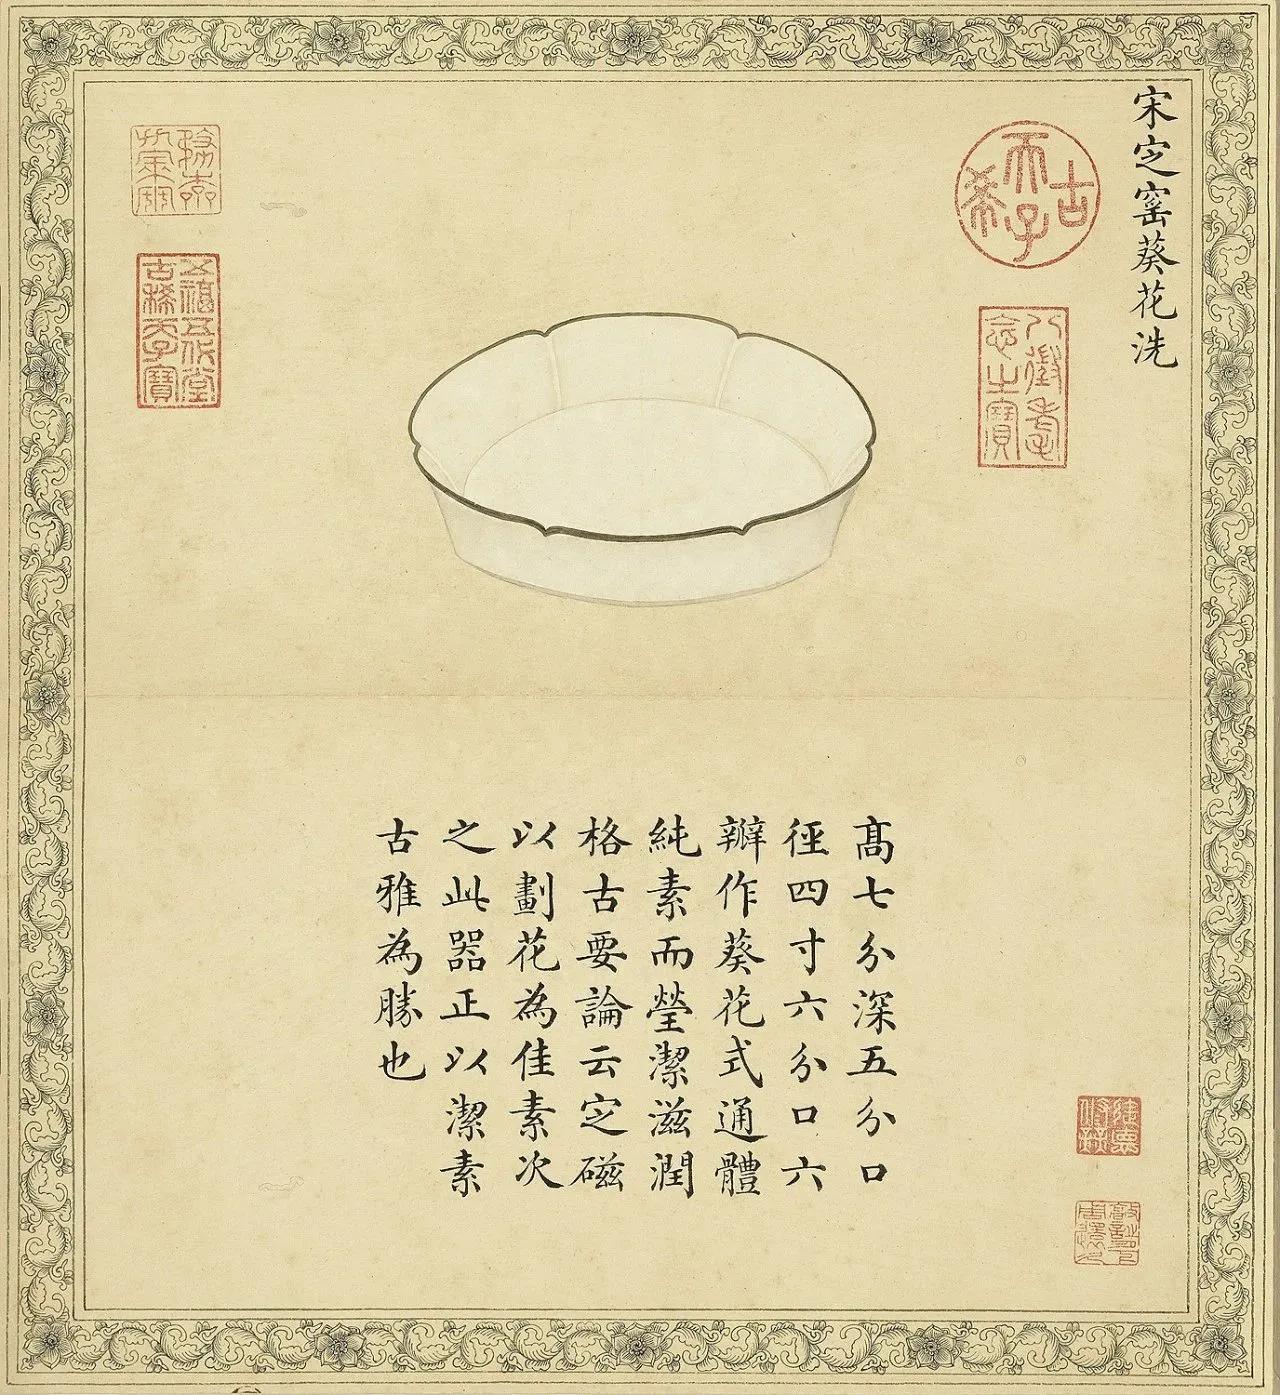 宋定窰葵花洗
古希天子
八徵耄念之寶
五福五代堂古稀天子寶
高七分深五分口
徑四寸六分口六
瓣作葵花式通體
純素而瑩潔滋潤
格古要論云定磁
以劃花為佳素次
之此器正以潔素
古雅為勝也